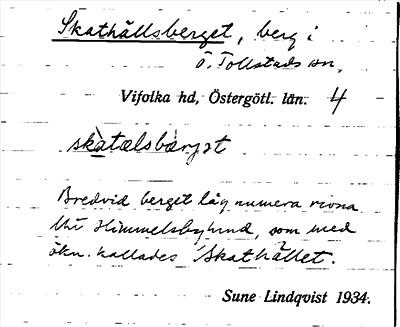 Skathällsberget, berg i
Ö. Tollstads sn,
Vifolka hd, Östergötl. län. 4
skàtælsbærjət
Bredvid berget låg numera rivna
thr Himmelsbylund, som med
ökn. kallades 'Skathället'.
Sune Lindqvist 1934.